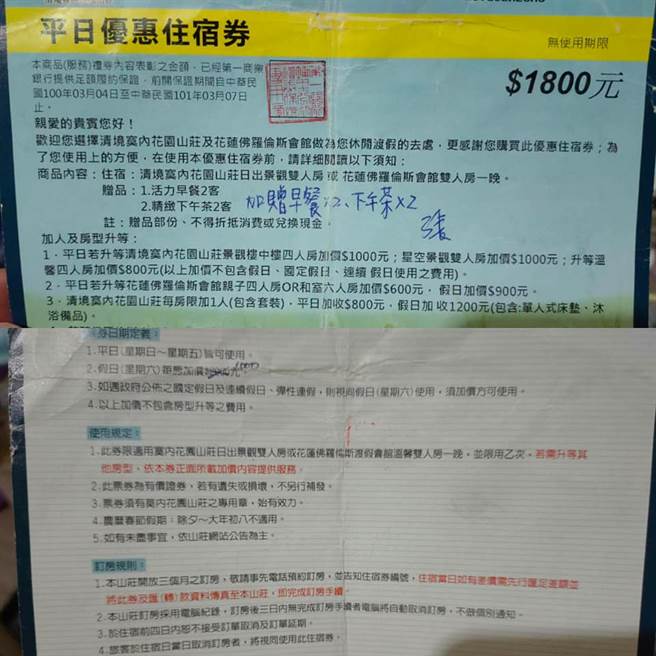 平日優惠住宿券
無使用期限
本商品(服務)禮券內容表彰之金額，已經第一商業
銀行提供足額履約保證，前開保證期間自中華民
國100年03月04日至中華民國101年03月07日
止。
$1800元
親愛的貴賓您好！
歡迎您選擇清境莫內花園山莊及花蓮佛羅倫斯會館做為您休閒渡假的去處，更感謝您購買此優惠住宿券；為
了您使用上的方便，在使用本優惠住宿券前，請詳細閱讀以下須知：
商品內容：住宿：清境莫內花園山莊日出景觀雙人房 或 花蓮佛羅倫斯會館雙人房一晚。
贈品：1.活力早餐2客
2.精緻下午茶2客
加贈早餐x2、下午茶x2
張
註：贈品部份、不得折抵消費或兌換現金。
加人及房型升等：
1．平日若升等清境莫內花園山莊景觀樓中樓四人房加價$1000元；星空景觀雙人房加價$1000元；升等溫
馨四人房加價$800元(以上加價不包含假日、國定假日、連續 假日使用之費用)。
2．平日若升等花蓮佛羅倫斯會館親子四人房OR和室六人房加價$600元， 假日加價$900元。
3．清境莫內花園山莊每房限加1人(包含套裝)，平日加收$800元，假日加 收1200元(包含:單人式床墊、沐
浴備品)。
券日期定義：
1.平日(星期日～星期五)皆可使用。
2.假日(星期六)每張加價
3.如遇政府公佈之國定假日及連續假日、彈性連假，則視同假日(星期六)使用，須加價方可使用。
4.以上加價不包含房型升等之費用。
使用規定：
1.此券限適用莫內花園山莊日出景觀雙人房或花蓮佛羅倫斯渡假會館溫馨雙人房一晚。並限用乙次。若需升等其
他房型，依本券正面所載加價內容提供服務。
2.此票券為有價證券，若有遺失或損壞，不另行補發。
3.票券須有莫內花園山莊之專用章，始有效力。
4.農曆春節假期：除夕～大年初八不適用。
5.如有未盡事宜，依山莊網站公告為主。
訂房規則：
1.本山莊開放三個月之訂房，敬請事先電話預約訂房，並告知住宿券編號，住宿當日如有差價需先行匯足差額並
將此券及匯(轉)款資料傳真至本山莊，即完成訂房手續。
2.本山莊訂房採用電腦紀錄，訂房後三日內無完成訂房手續者電腦將自動取消訂房，不做個別通知。
3.於住宿前四日內恕不接受訂單取消及訂單延期。
4.旅客於住宿日當日取消訂房者，將視同使用此住宿券。